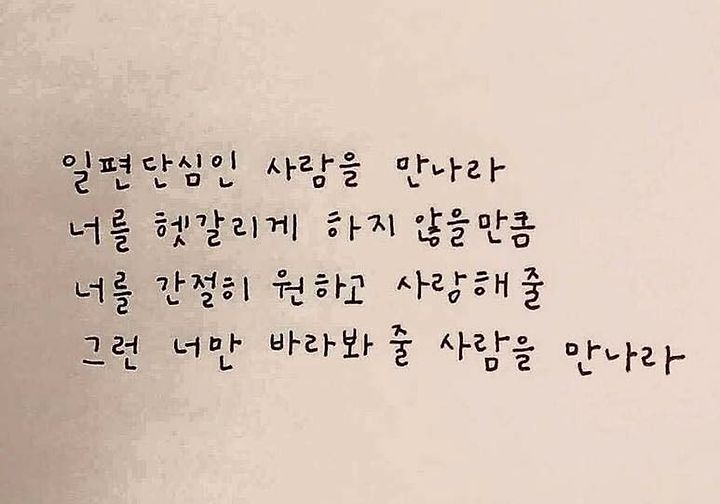 일편단심인 사람을 만나라
너를 헷갈리게 하지 않을만큼
너를 간절히 원하고 사랑해 줄
그런 너만 바라봐 줄 사람을 만나라